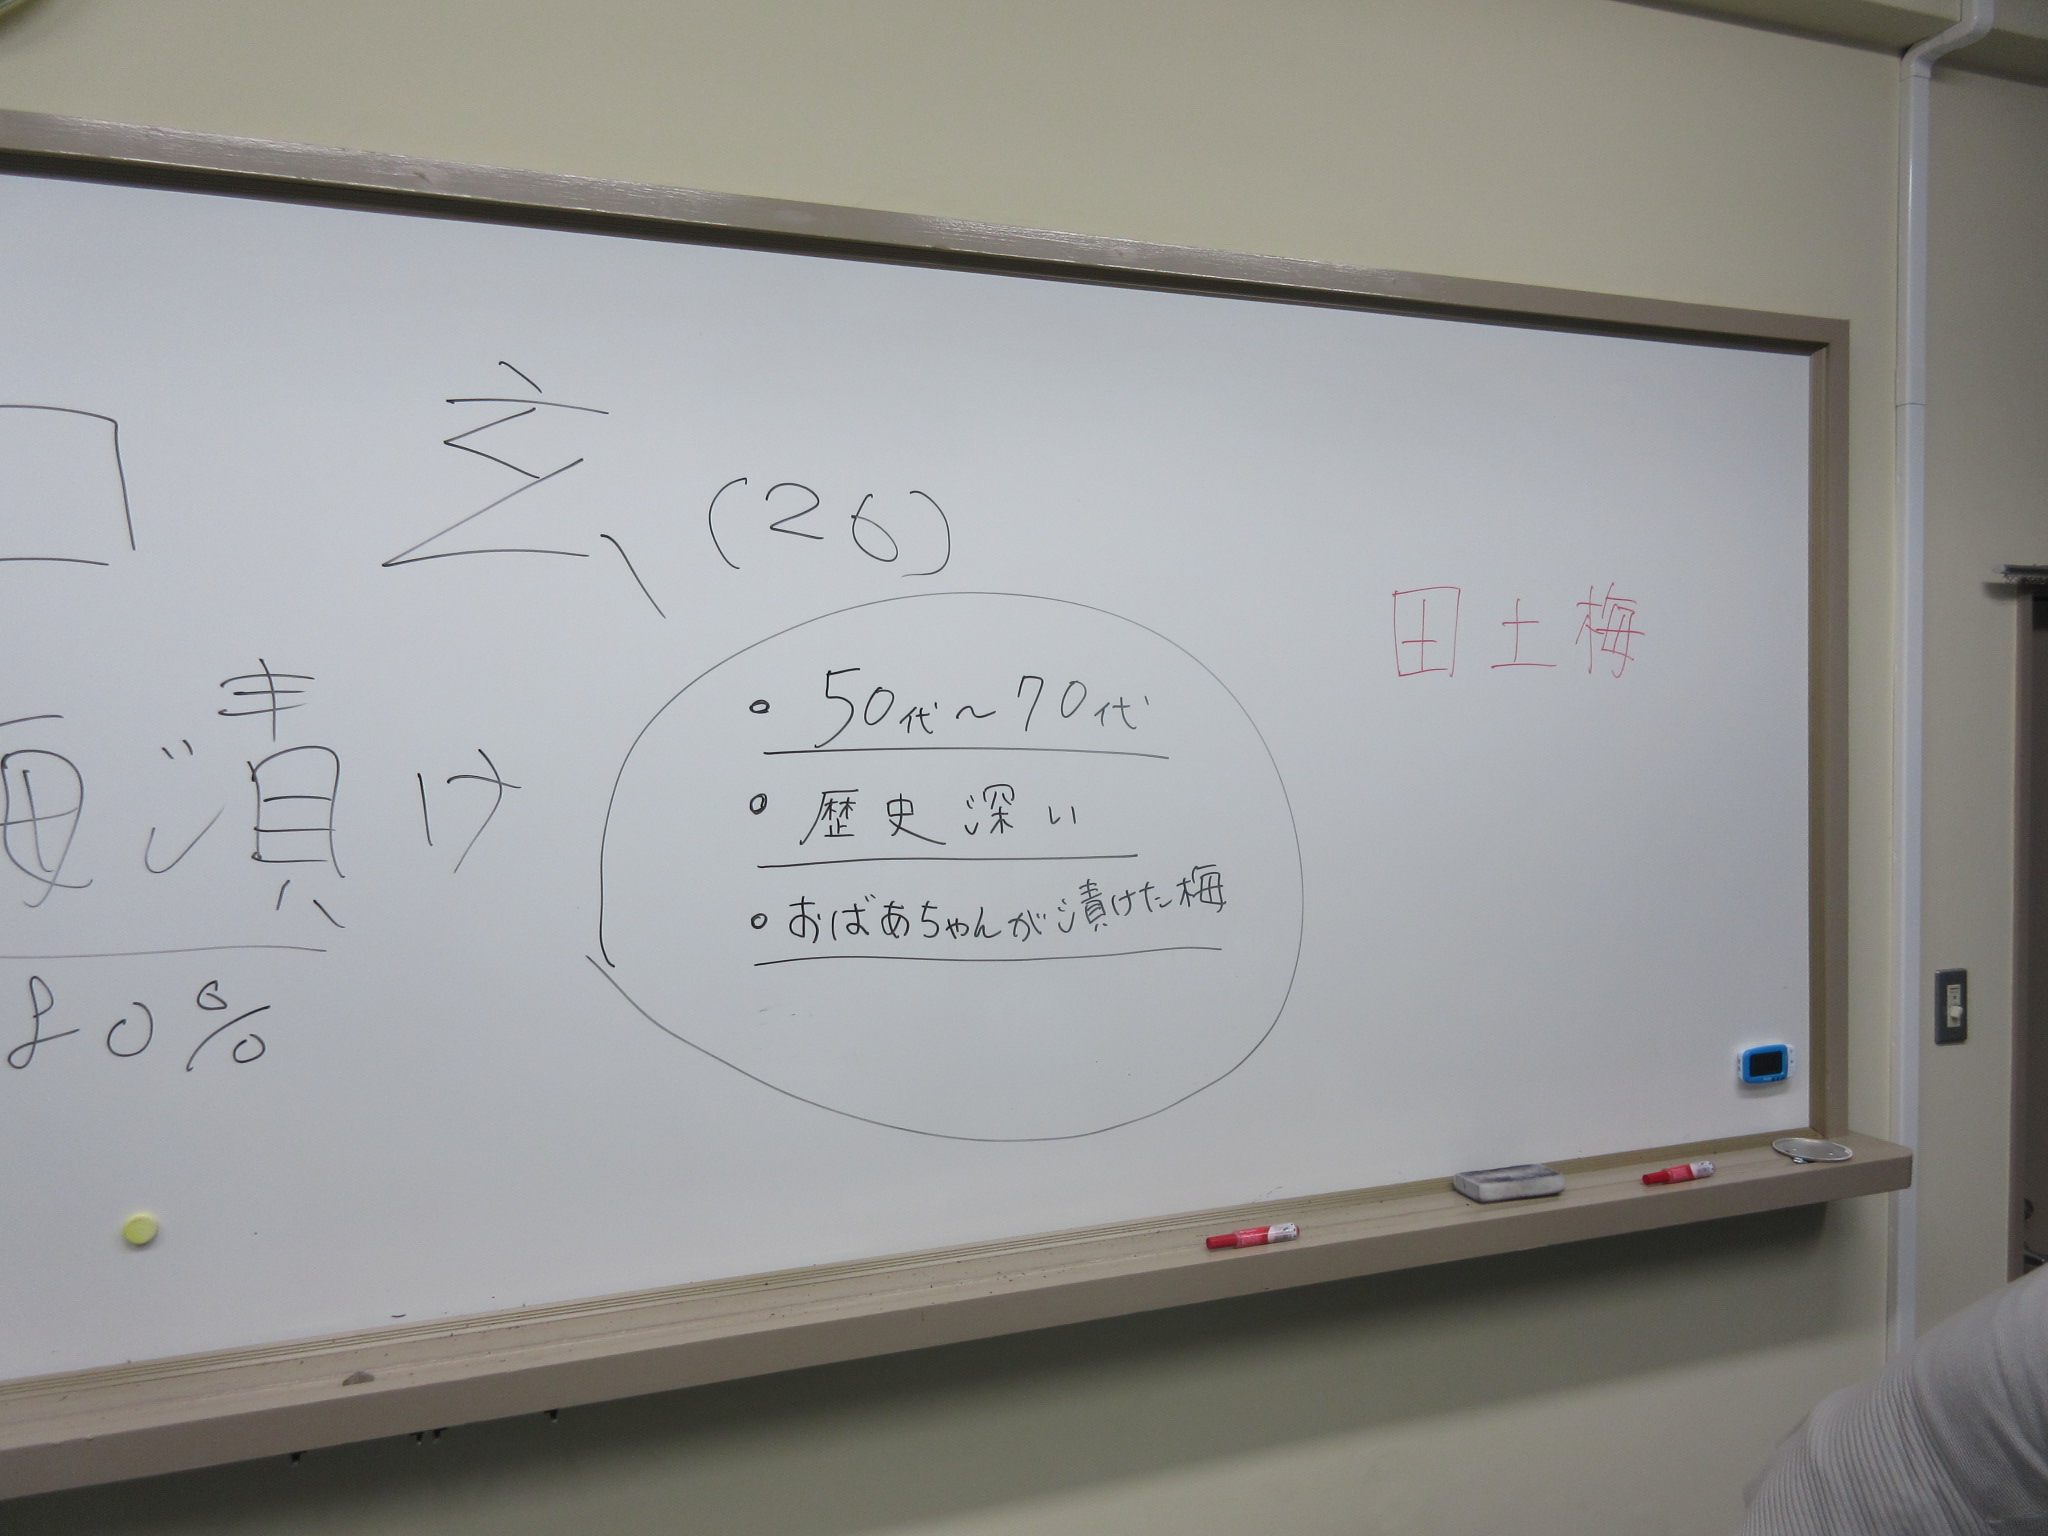 玄(26)
漬け
・50代〜70代
・歴史深い
・おばあちゃんが漬けた梅
0%
田土梅